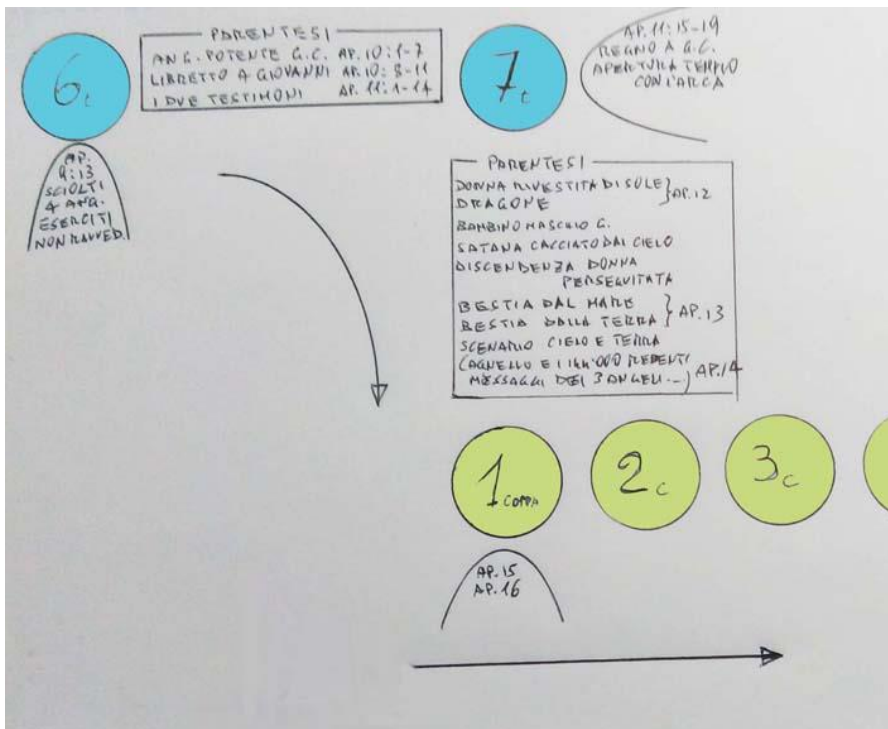 6t
PARENTESI
ANG. POTENTE G.C. AP. 10:1-7
LIBRETTO A GIOVANNI AP. 10: 8-11
I DUE TESTIMONI AP. 11:1-14
7t
AP. 11:15-19
REGNO A G.C.
APERTURA TEMPIO
CON L'ARCA
AP.
9:13
SCIOLTI
4 ANG.
ESERCITI
NON RAVVED.
PARENTESI
DONNA RIVESTITA DI SOLE
DRAGONE
} AP.12
BAMBINO MASCHIO G.
SATANA CACCIATO DAL CIELO
DISCENDENZA DONNA
PERSEGUITATA
BESTIA DAL MARE
BESTIA DALLA TERRA } AP.13
SCENARIO CIELO E TERRA
(AGNELLO E I 144'000 REDENTI
MESSAGGI DEI 3 ANGELI...) AP.14
1 COPPA
2c
3c
AP.15
AP.16